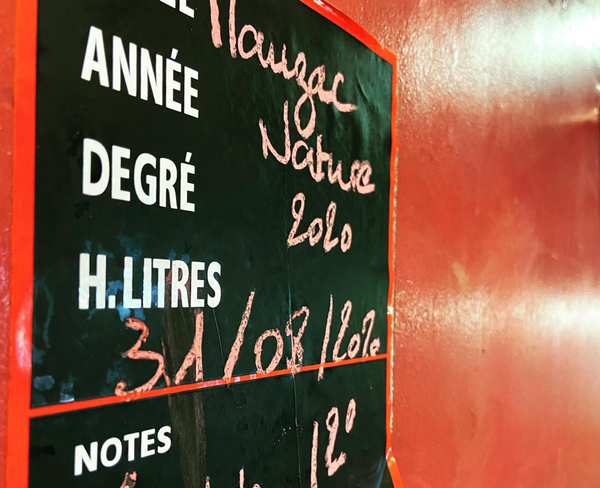 Mauzac
ANNÉE
Nature
DEGRÉ
2020
H.LITRES
31/08/2020
NOTES
12°